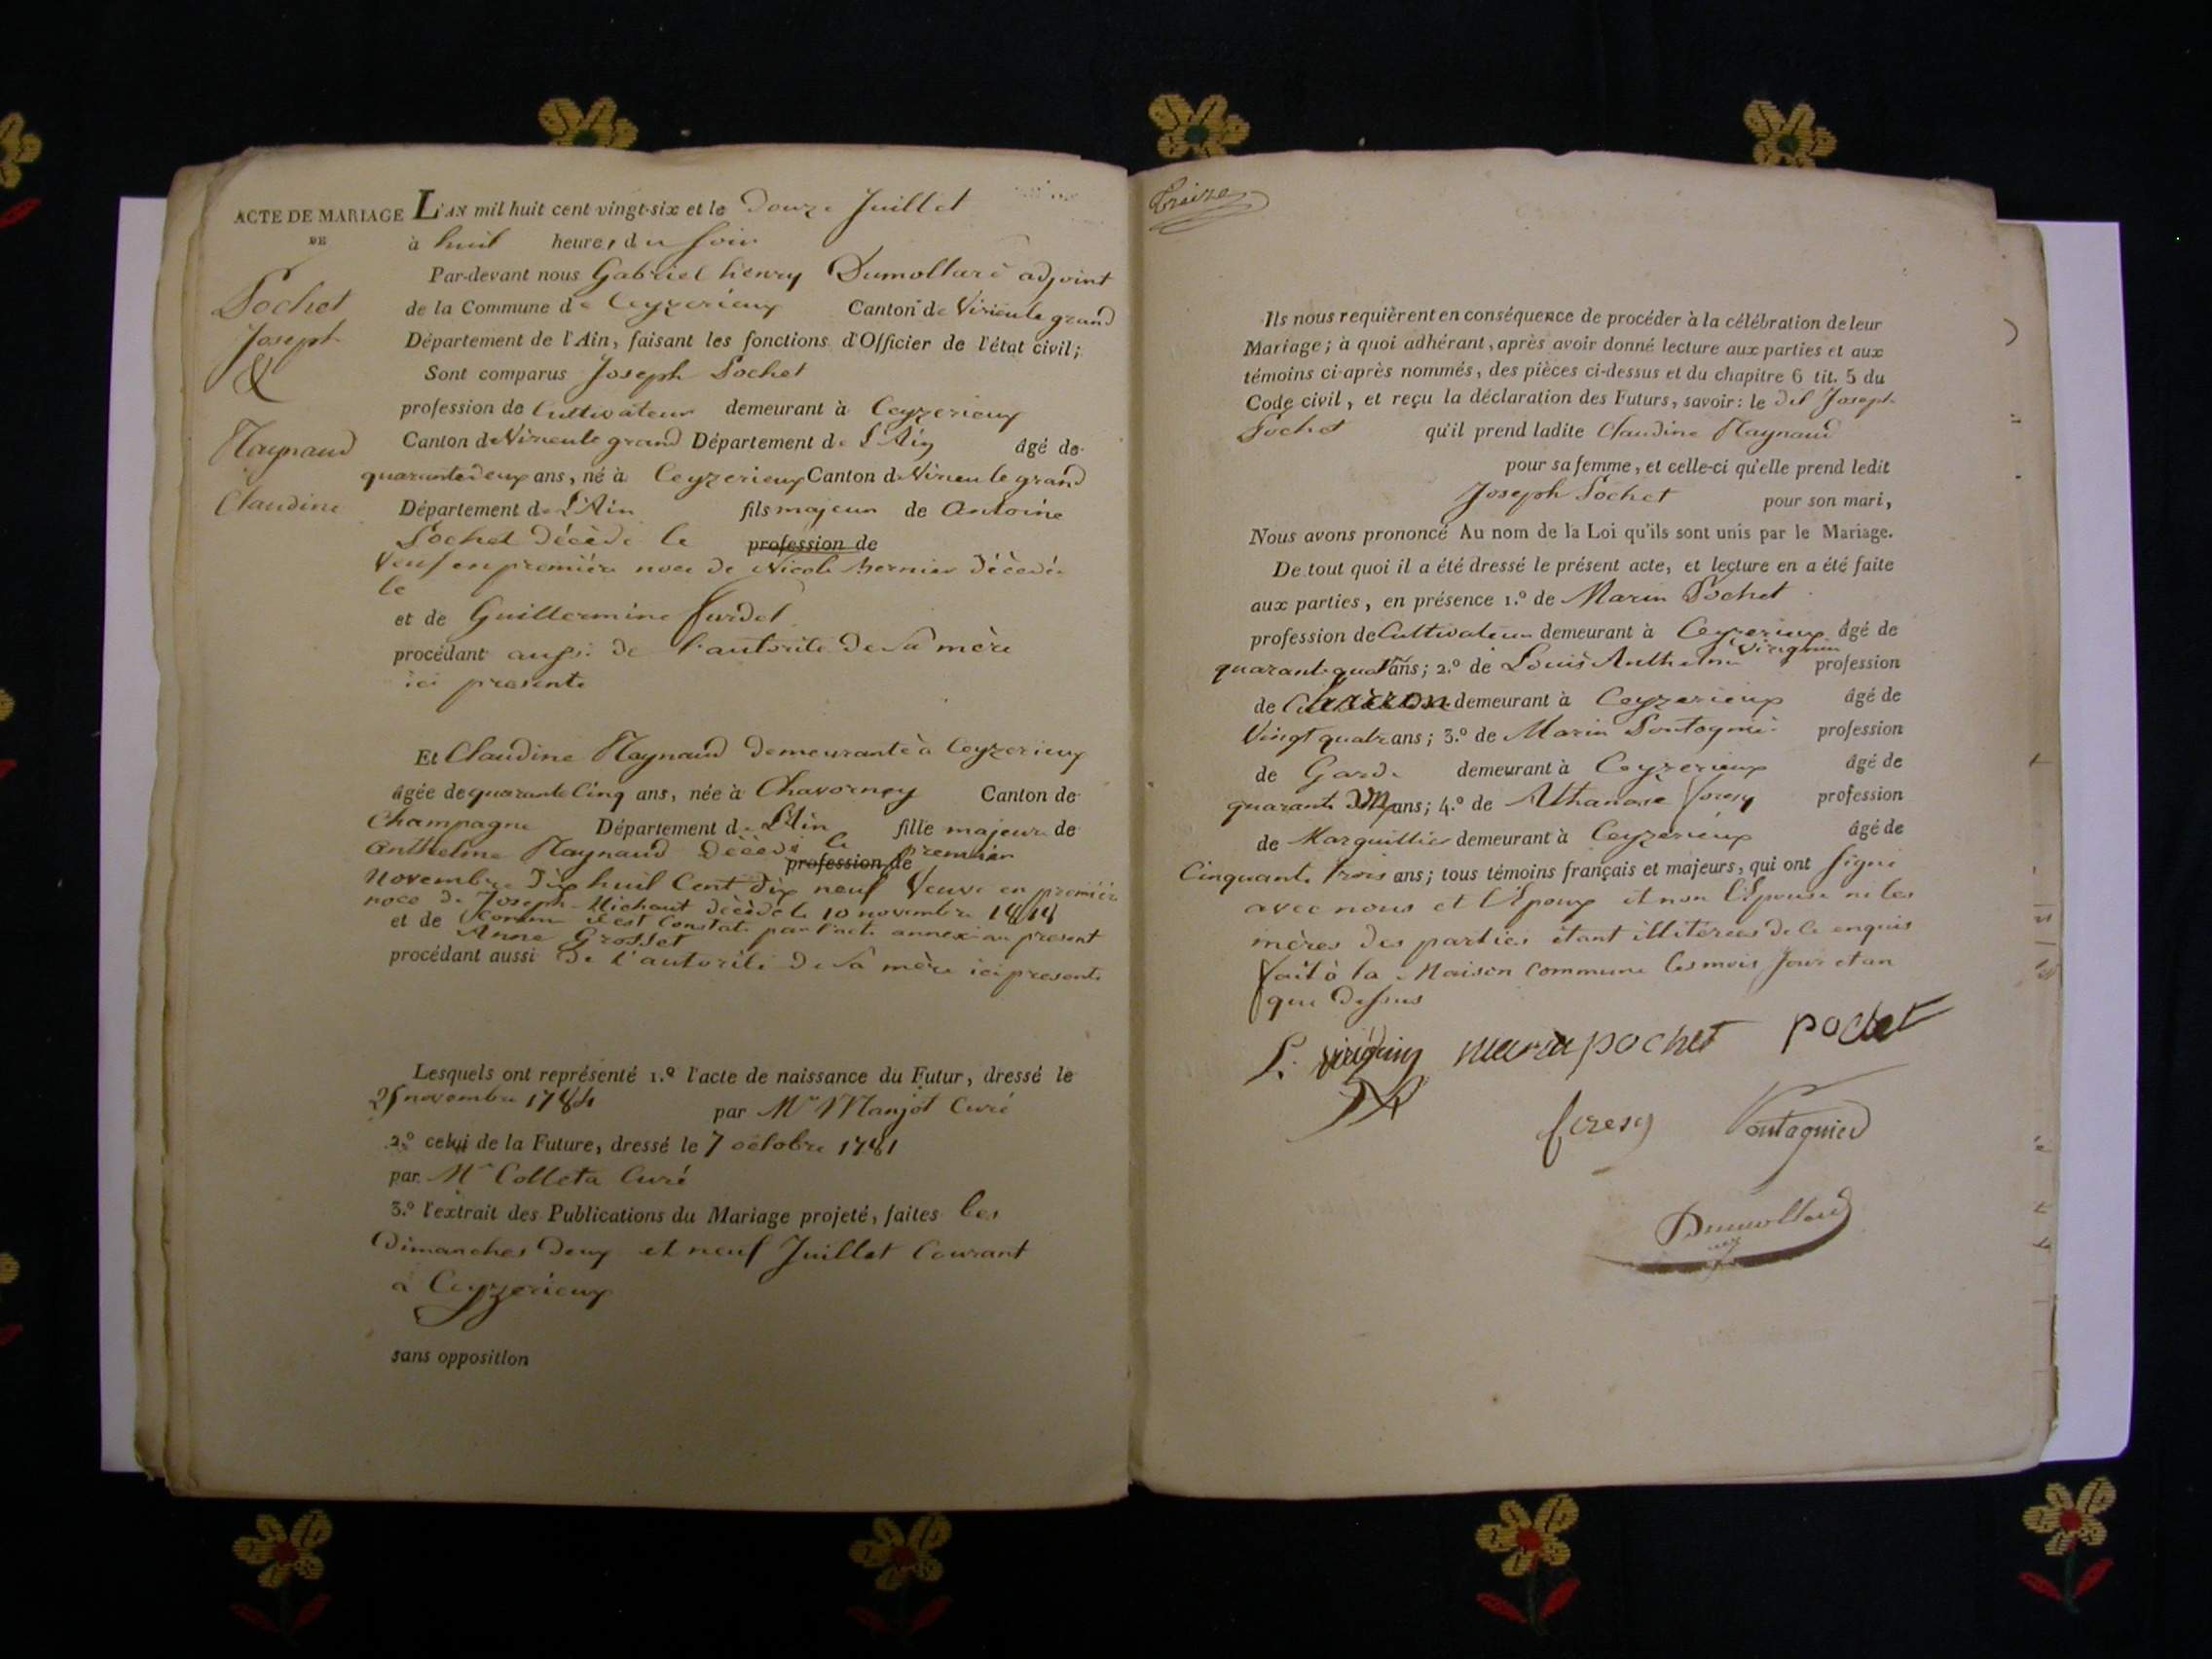 ACTE DE MARIAGE
DE
Pochet
Joseph
&
Raynaud
Claudine
L'AN mil huit cent vingt-six et le douze Juillet
à huit heures du soir
Par-devant nous Gabriel henry Dumollard adjoint
de la Commune de Ceyzerieux Canton de Virieu le grand
Département de l'Ain, faisant les fonctions d'Officier de l'état civil;
Sont comparus Joseph Pochet
profession de Cultivateur demeurant à Ceyzerieux
Canton de Virieu le grand Département de L'Ain âgé de
quarante deux ans, né à Ceyzerieux Canton de Virieu le grand
Département de L'Ain fils majeur de Antoine
Pochet décédé le profession de
Veuf en première noce de Nicole Bernier décédée
le
et de Guillermine Curdel
procédant aussi de l'autorité de sa mère
ici presente
Et Claudine Raynaud demeurante à Ceyzerieux
âgée de quarante Cinq ans, née à Chavornay Canton de
Champagne Département de L'Ain fille majeure de
Anthelme Raynaud décédé le Premier
profession de
Novembre Dix huit Cent dix neuf Veuve en première
noce de Joseph Michaut décédé le 10 novembre 1814
comme il est Constaté par l'acte annexé au present
et de Anne Grosset
procédant aussi de l'autorité de sa mère ici presente
Lesquels ont représenté 1.º l'acte de naissance du Futur, dressé le
25 novembre 1784 par Mr Manjot Curé
2.º celui de la Future, dressé le 7 octobre 1781
par Mr Colleta Curé
3.º l'extrait des Publications du Mariage projeté, faites les
Dimanches deux et neuf Juillet Courant
à Ceyzerieux
sans opposition
Treize
Ils nous requièrent en conséquence de procéder à la célébration de leur
Mariage; à quoi adhérant, après avoir donné lecture aux parties et aux
témoins ci-après nommés, des pièces ci-dessus et du chapitre 6 tit. 5 du
Code civil, et reçu la déclaration des Futurs, savoir: le dit Joseph
Pochet qu'il prend ladite Claudine Raynaud
pour sa femme, et celle-ci qu'elle prend ledit
Joseph Pochet pour son mari,
Nous avons prononcé Au nom de la Loi qu'ils sont unis par le Mariage.
De tout quoi il a été dressé le présent acte, et lecture en a été faite
aux parties, en présence 1.º de Marin Pochet
profession de Cultivateur demeurant à Ceyzerieux âgé de
quarante quatre ans; 2.º de Louis Anthelme Virignin profession
de demeurant à Ceyzerieux âgé de
Vingt quatre ans; 3.º de Marin Pontagnié profession
de Garde demeurant à Ceyzerieux âgé de
quarante ans; 4.º de Athanase profession
de Marguillier demeurant à Ceyzerieux âgé de
Cinquante trois ans; tous témoins français et majeurs, qui ont signé
avec nous et l'Epoux et non l'Epouse ni les
mères des parties étant illitérées de ce enquis
fait à la Maison Commune les mois Jour et an
que dessus
L. virignin marin pochet pochet
Pontagnier
Dumollard